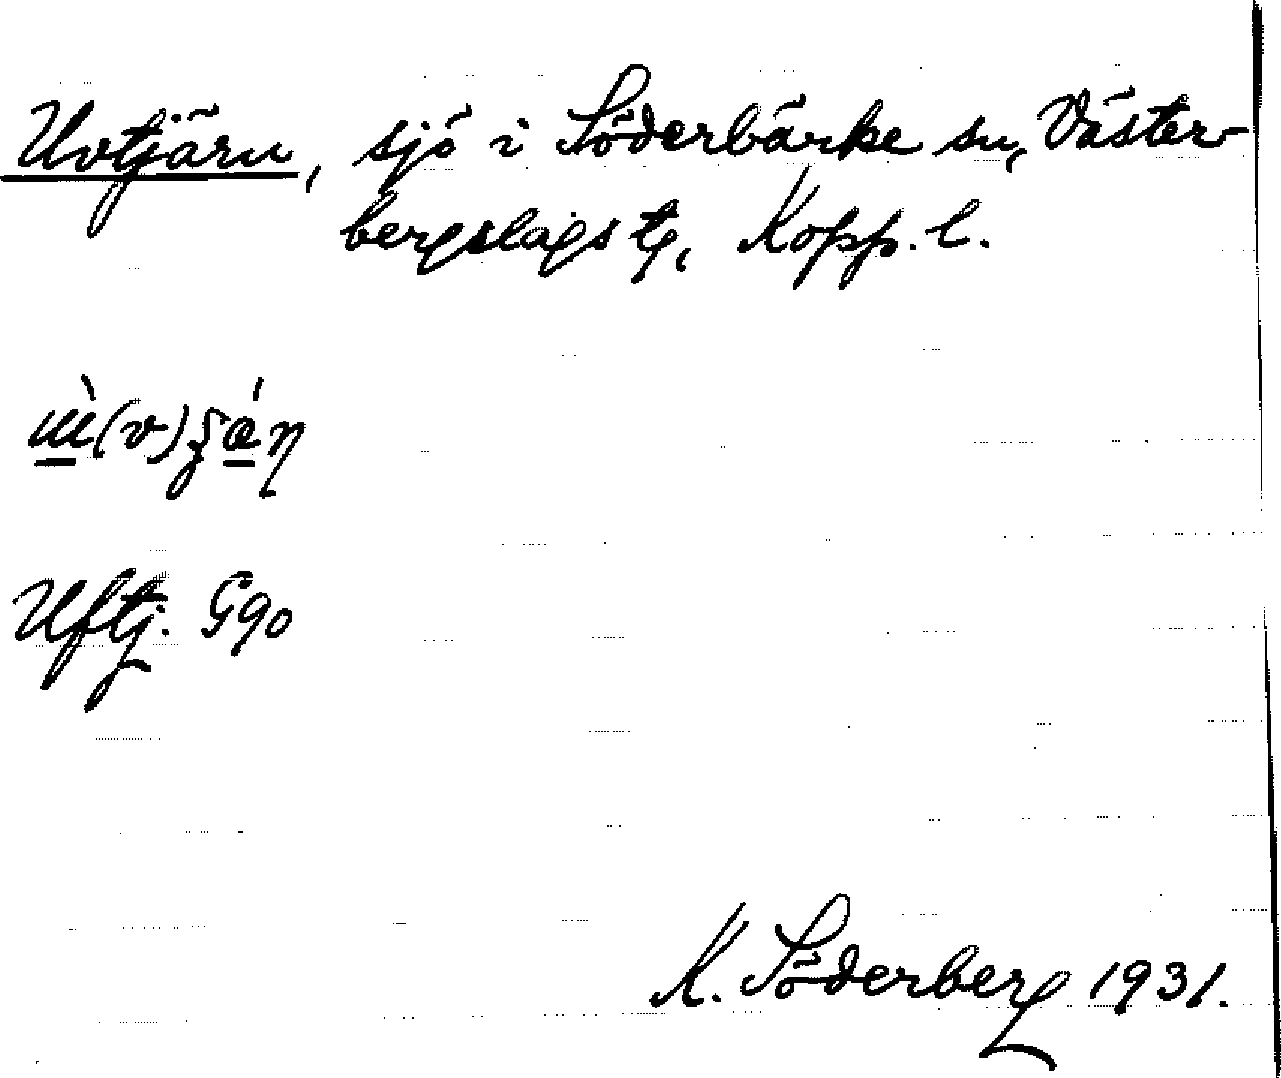 Uvtjärn, sjö i Söderbärke sn, Väster-
bergslags tg, Kopp. l.
Uftj. G90
K. Söderberg 1931.